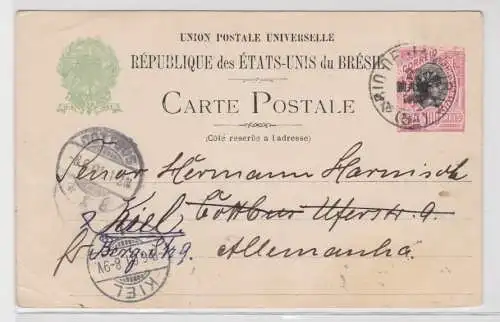 UNION POSTALE UNIVERSELLE
RÉPUBLIQUE DES ÉTATS-UNIS DU BRÉSIL
CARTE POSTALE
(Côté reservé a l'adresse)
RIO DE JA
100
COTTBUS
Senor Hermann Harnisch
Kiel Cottbus Uferstr. 9.
Bergstr 9.
Allemanha.
8-9V
KIEL